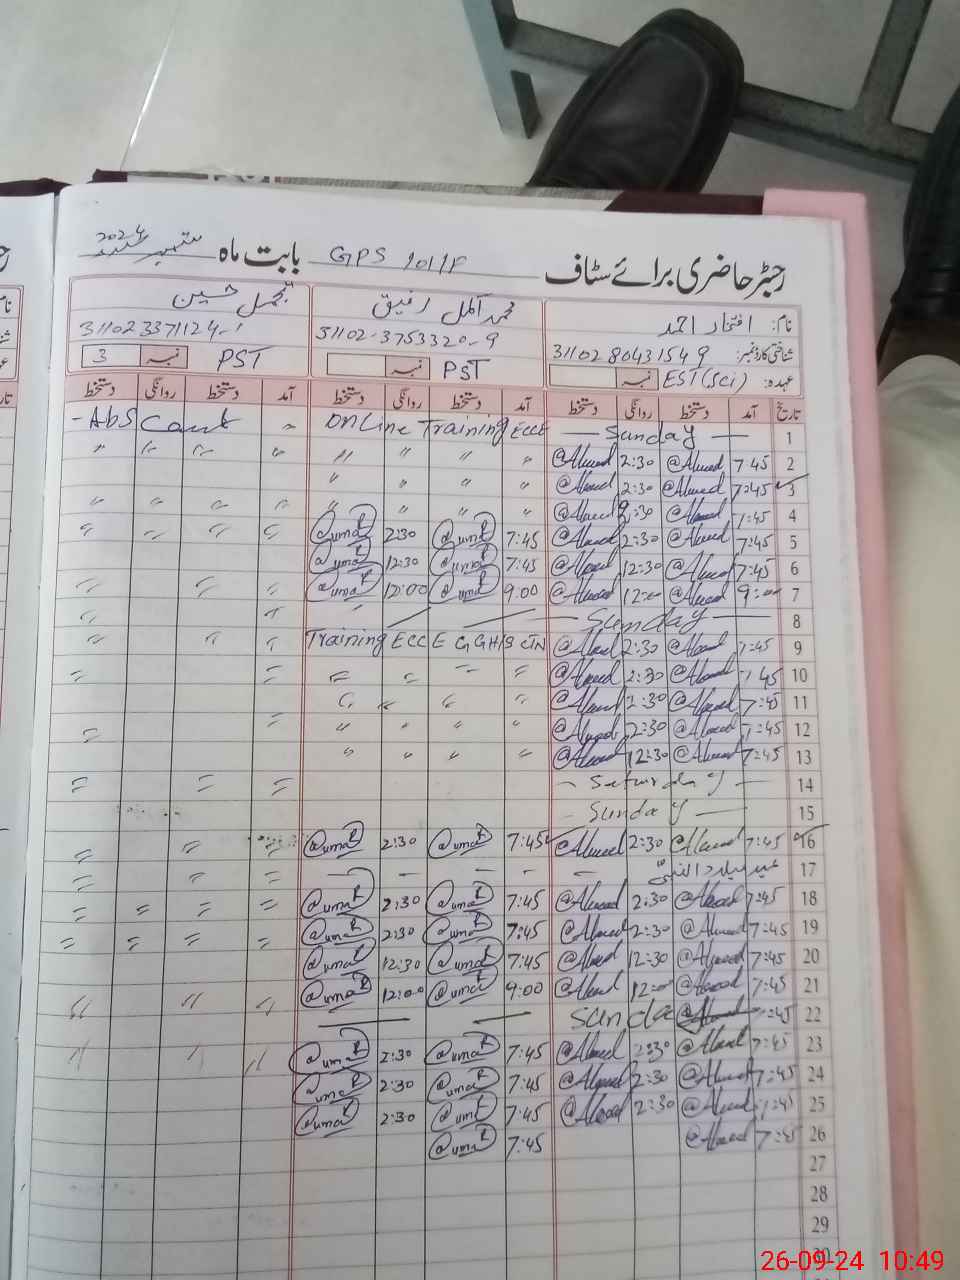 رجسٹر حاضری برائے سٹاف GPS 101/P بابت ماہ ستمبر 2024
نام: افتخار احمد محمد اکمل رفیق تجمل حسین
شناختی کارڈ نمبر: 31102 8043154 9 31102-3753320-9 31102 3371124-1
عہدہ: EST(Sci) نمبر PST نمبر PST نمبر 3
تاریخ آمد دستخط روانگی دستخط آمد دستخط روانگی دستخط آمد دستخط روانگی دستخط
1 — Sunday — Online Training ECCE -Abs Cout "
2 7:45 @Ahmed 2:30 @Ahmed " " " " " " " "
3 7:45 @Ahmed 2:30 @Ahmed " " " "
4 7:45 @Ahmed 2:30 @Ahmed " " " " " " " "
5 7:45 @Ahmed 2:30 @Ahmed 7:45 @umar 2:30 @umar " " " "
6 7:45 @Ahmed 12:30 @Ahmed 7:45 @umar 12:30 @umar
7 9:00 @Ahmed 12:00 @Ahmed 9:00 @umar 12:00 @umar " " "
8 — Sunday — " "
9 7:45 @Ahmed 2:30 @Ahmed Training ECCE GGHS " " "
10 7:45 @Ahmed 2:30 @Ahmed " " " " " "
11 7:45 @Ahmed 2:30 @Ahmed " " " "
12 7:45 @Ahmed 2:30 @Ahmed " " " " " "
13 7:45 @Ahmed 12:30 @Ahmed " " " "
14 — Saturday — " " "
15 — Sunday —
16 7:45 @Ahmed 2:30 @Ahmed 7:45 @umar 2:30 @umar " " "
17 عید میلاد النبیؐ — — — — — " " "
18 7:45 @Ahmed 2:30 @Ahmed 7:45 @umar 2:30 @umar " " " "
19 7:45 @Ahmed 2:30 @Ahmed 7:45 @umar 2:30 @umar " " " "
20 7:45 @Ahmed 12:30 @Ahmed 7:45 @umar 12:30 @umar
21 7:45 @Ahmed 12:00 @Ahmed 9:00 @umar 12:00 @umar " " "
22 7:45 @Ahmed Sunda — — —
23 7:45 @Ahmed 2:30 @Ahmed 7:45 @umar 2:30 @umar " " "
24 7:45 @Ahmed 2:30 @Ahmed 7:45 @umar 2:30 @umar
25 7:45 @Ahmed 2:30 @Ahmed 7:45 @umar 2:30 @umar
26 7:45 @Ahmed 7:45 @umar
27
28
29
30
26-09-24 10:49